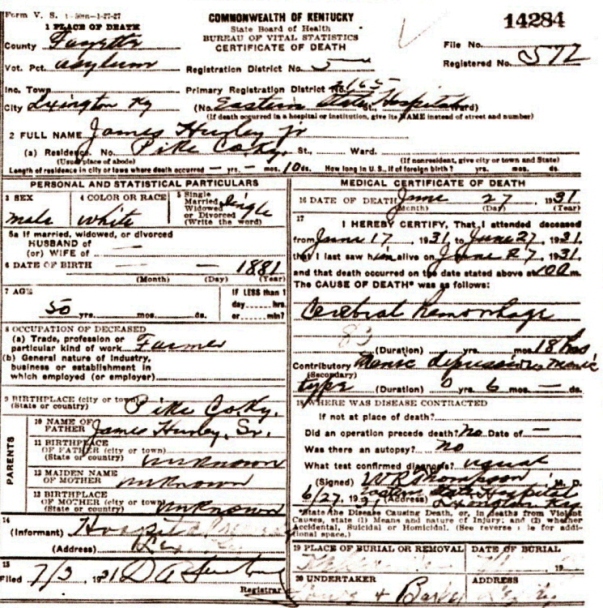 Form V. S. 1
COMMONWEALTH OF KENTUCKY
State Board of Health
BUREAU OF VITAL STATISTICS
CERTIFICATE OF DEATH
14284
1 PLACE OF DEATH
County Fayette
File No.
Vot. Pct. Asylum
Registration District No. 5
Registered No. 572
Inc. Town
Primary Registration District No. 2165
City Lexington Ky (No. Eastern State Hospital St., Ward)
(If death occurred in a hospital or institution, give its NAME instead of street and number)
2 FULL NAME James Hurley Jr
(a) Residence. No. Pike Co Ky. St., Ward.
(Usual place of abode) (If nonresident, give city or town and State)
Length of residence in city or town where death occurred — yrs. — mos. 10 ds. How long in U. S., if of foreign birth? yrs. mos. ds.
PERSONAL AND STATISTICAL PARTICULARS
3 SEX
male
4 COLOR OR RACE
white
5 Single
Married
Widowed
or Divorced
(Write the word)
Single
5a If married, widowed, or divorced
HUSBAND of
(or) WIFE of —
6 DATE OF BIRTH — — 1881
(Month) (Day) (Year)
7 AGE
50 yrs. mos. ds.
IF LESS than 1
day hrs.
or min.?
8 OCCUPATION OF DECEASED
(a) Trade, profession or
particular kind of work Farmer
(b) General nature of industry,
business or establishment in
which employed (or employer)
9 BIRTHPLACE (city or town)
(State or country) Pike Co Ky.
PARENTS
10 NAME OF
FATHER James Hurley, Sr.
11 BIRTHPLACE
OF FATHER (city or town)
(State or country) unknown
12 MAIDEN NAME
OF MOTHER unknown
13 BIRTHPLACE
OF MOTHER (city or town)
(State or country) unknown
14
(Informant) Hospital
(Address)
15
Filed 7/3 1931
Registrar
MEDICAL CERTIFICATE OF DEATH
16 DATE OF DEATH June 27 1931
(Month) (Day) (Year)
17
I HEREBY CERTIFY, That I attended deceased
from June 17, 1931, to June 27, 1931
that I last saw him alive on June 27, 1931
and that death occurred on the date stated above at 100 a m.
The CAUSE OF DEATH* was as follows:
Cerebral hemorrhage
(Duration) yrs. mos. 18 hrs
Contributory Manic depressive manic
(Secondary)
type (Duration) 0 yrs. 6 mos. — ds.
18 WHERE WAS DISEASE CONTRACTED
If not at place of death?
Did an operation precede death? No Date of —
Was there an autopsy? No
What test confirmed diagnosis? usual
(Signed) W R Thompson M. D.
6/27, 1931 (Address) Eastern State Hospital
*State the Disease Causing Death, or, in deaths from Violent
Causes, state (1) Means and nature of Injury; and (2) whether
Accidental, Suicidal or Homicidal. (See reverse side for additional space.)
19 PLACE OF BURIAL OR REMOVAL
DATE OF BURIAL
20 UNDERTAKER
ADDRESS